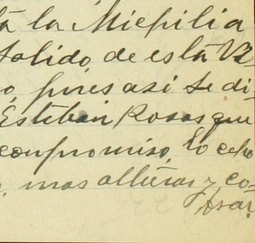 a la Miepilia
salido de esta V2
o pues asi se di-
Esteban Rosas que
compromiso, lo echo
mas alturas y co-
sar.